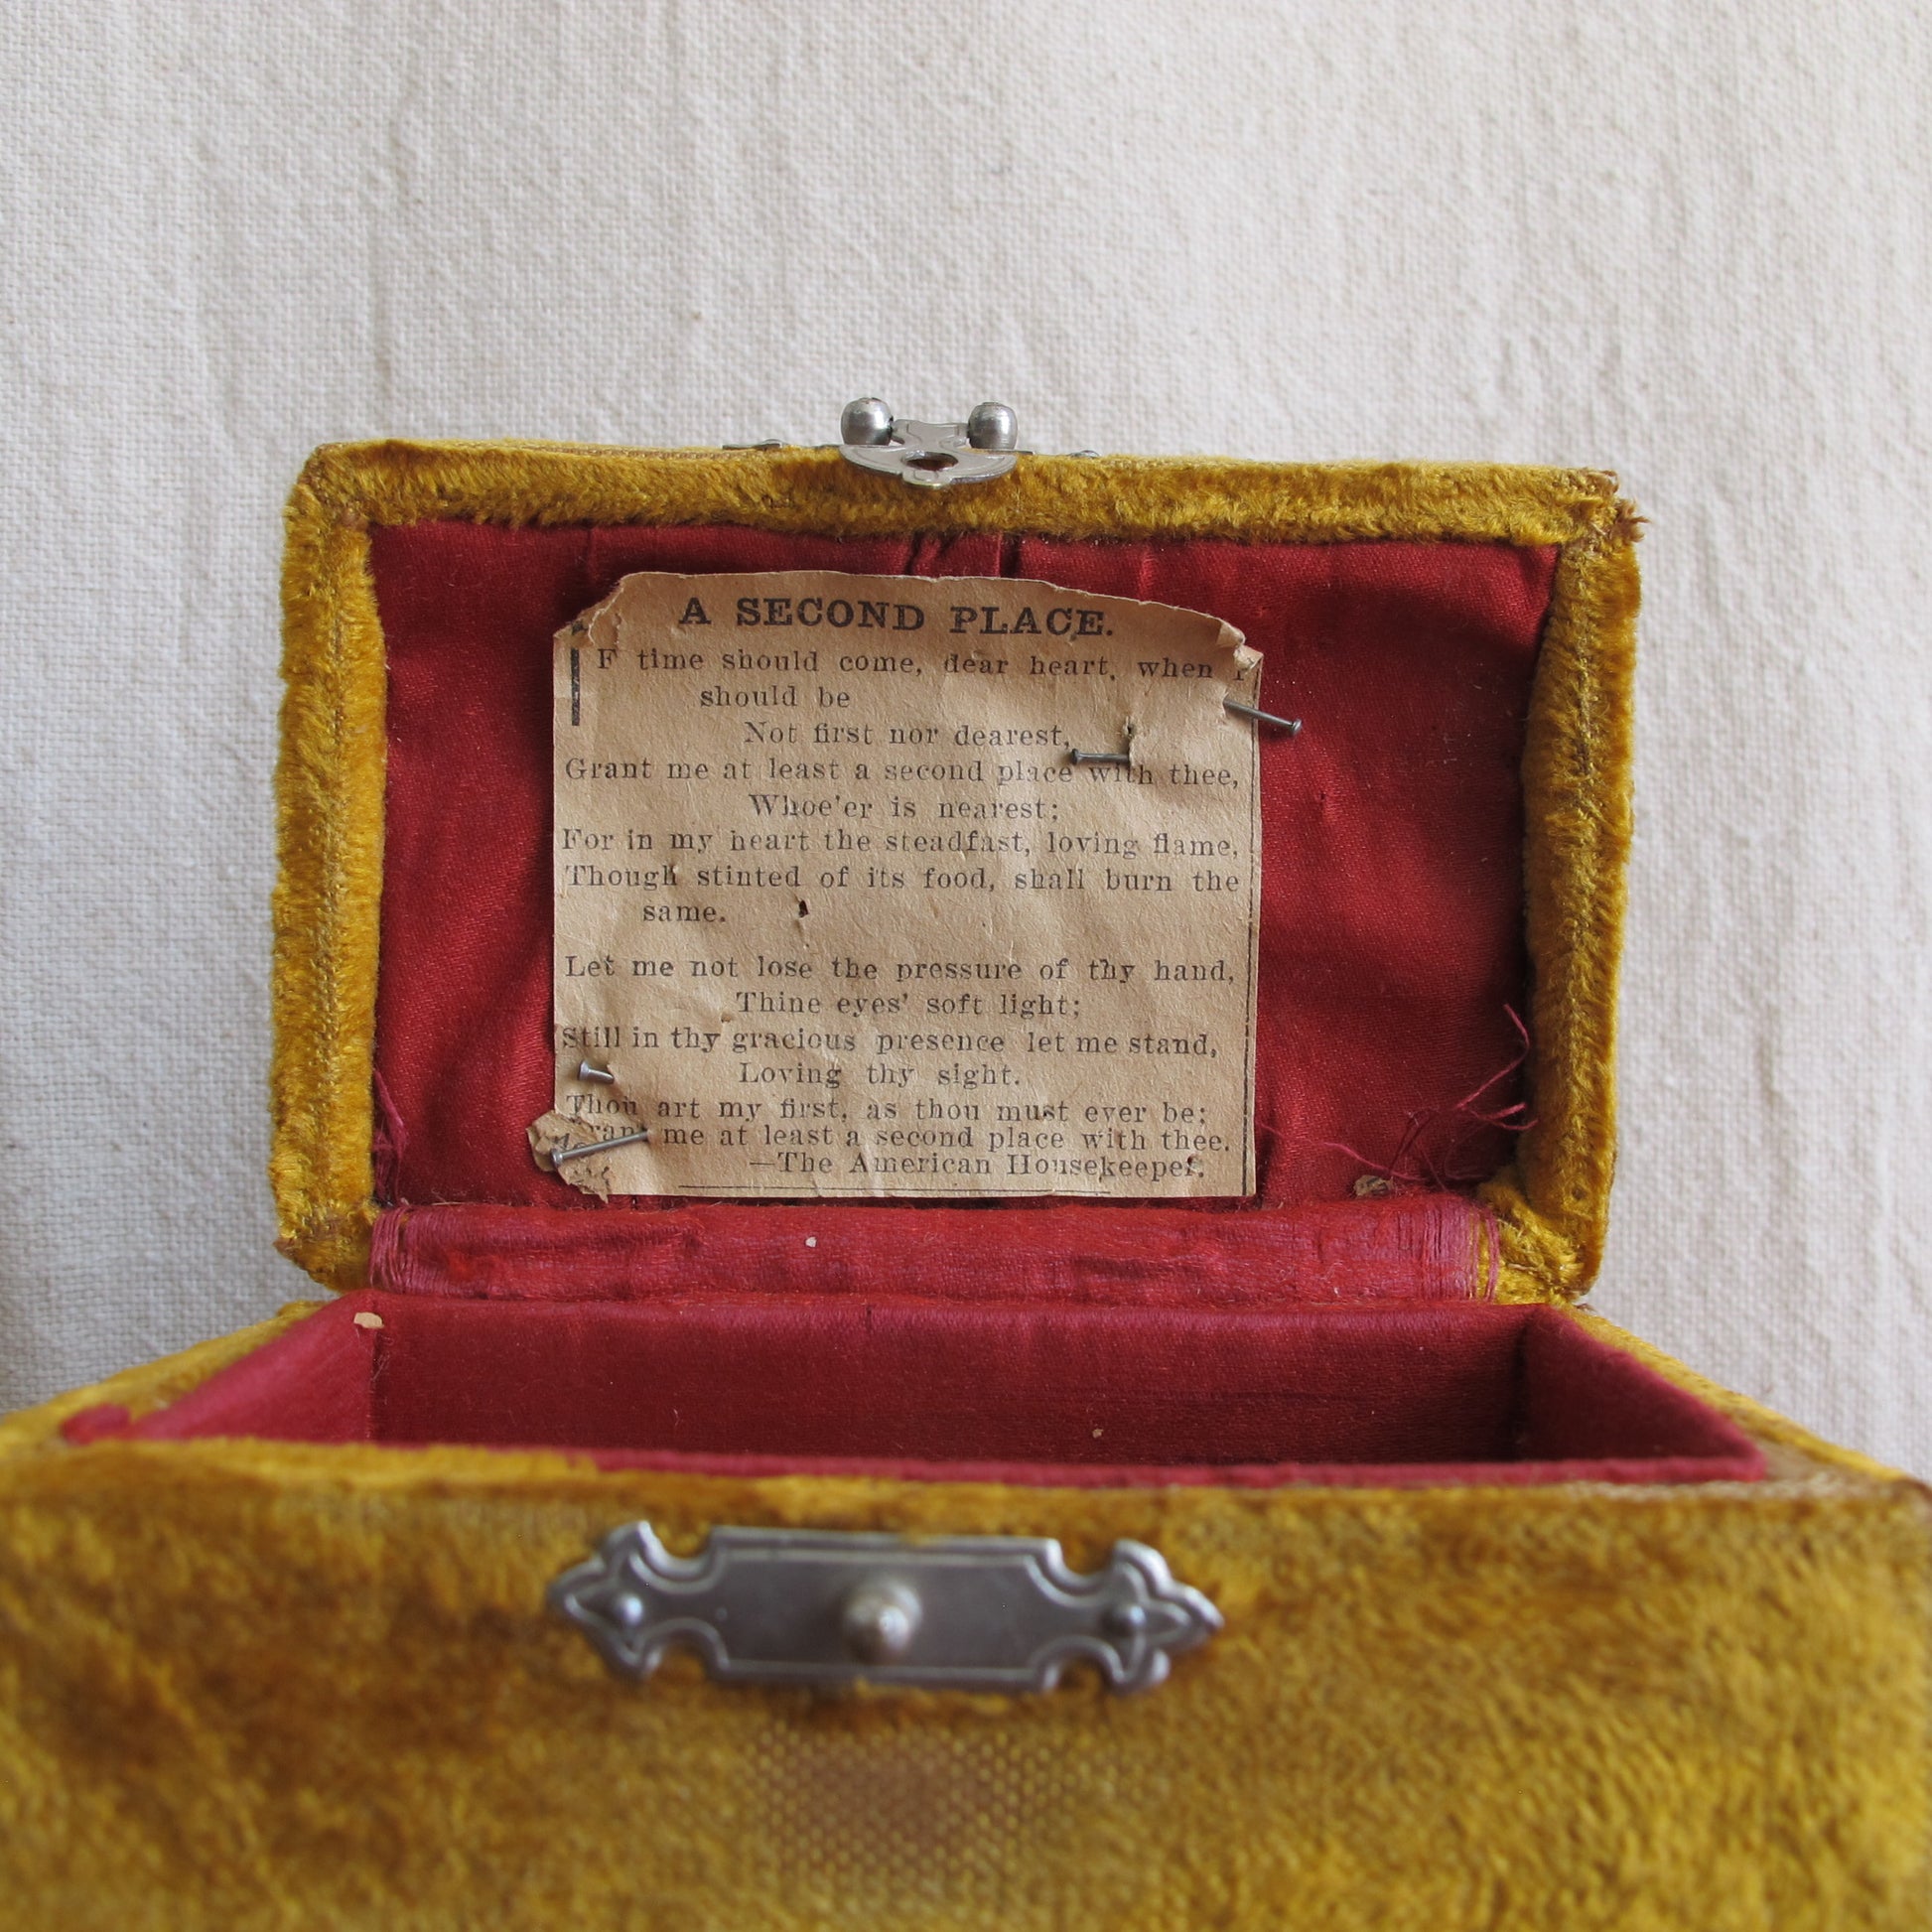 A SECOND PLACE.
IF time should come, dear heart, when I
should be
Not first nor dearest,
Grant me at least a second place with thee,
Whoe'er is nearest;
For in my heart the steadfast, loving flame,
Though stinted of its food, shall burn the
same.
Let me not lose the pressure of thy hand,
Thine eyes' soft light;
Still in thy gracious presence let me stand,
Loving thy sight.
Thou art my first, as thou must ever be;
Grant me at least a second place with thee.
—The American Housekeeper.